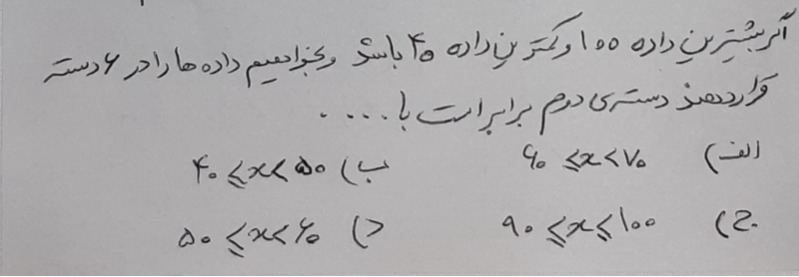 اگر بیشترین داده ۱۰۰ و کمترین داده ۴۰ باشد و بخواهیم داده ها را در ۶ دسته
قرار دهند دسته ی دوم برابر است با ....
الف) ۶۰ ≤x<۷۰ ب) ۴۰ ≤x<۵۰
ج) ۹۰ ≤x≤ ۱۰۰ د) ۵۰ ≤x<۶۰